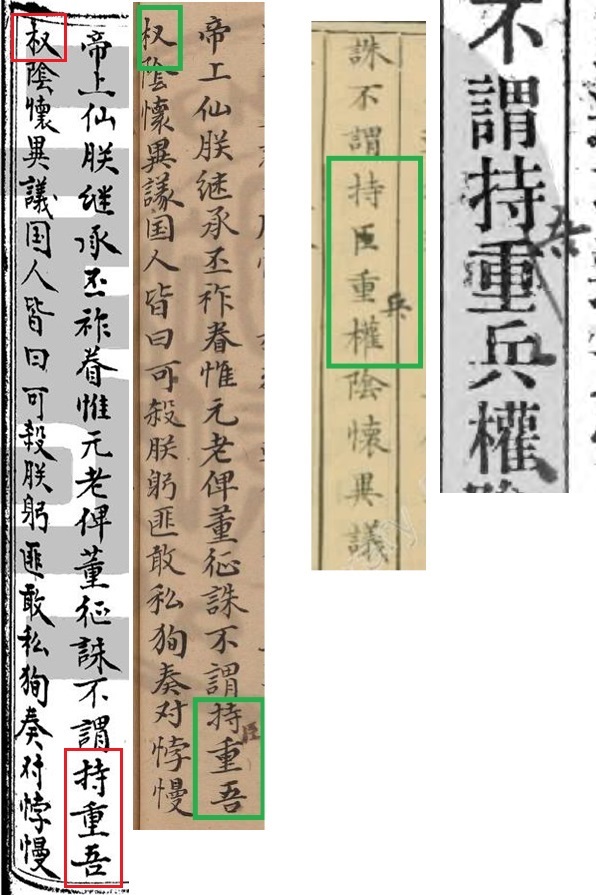 帝上仙朕継承丕祚眷惟元老俾董征誅不謂持重吾
权陰懷異議国人皆曰可殺朕躬匪敢私狥奏对悖慢
帝工仙朕継承丕祚眷惟元老俾董征誅不謂持重吾
臣
权陰懷異議国人皆曰可殺朕躬匪敢私狥奏对悖慢
誅不謂持臣重權陰懷異議
兵
不謂持重兵權